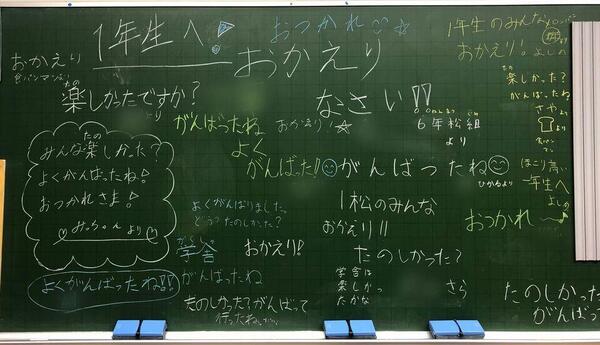 1年生へ!
おつかれ
おかえり
なさい!!
6年松組
より
おかえり
食パンマンより
楽しかったですか?
たの
より
みんな楽しかった?
たの
よくがんばったね!
おつかれさま!
みっちゃんより
よくがんばったね!!
がんばったね
おかえり!
よく
がんばった!!
がんばったね
ひかるより
よくがんばりました
どうっ たのしかった?
学舎
おかえり!
がんばったね
たのしかった?がんばって
行ったね。
1松のみんな
おかえり!!
たのしかった?
学舎は
楽しかっ
たかな
さら
1年生のみんな
おかえり!
よしの
楽しかった?
たの
がんばったね
さやより
ほこり高い
一年生へ
よしの
おつかれ〜
たのしかった
がんばった